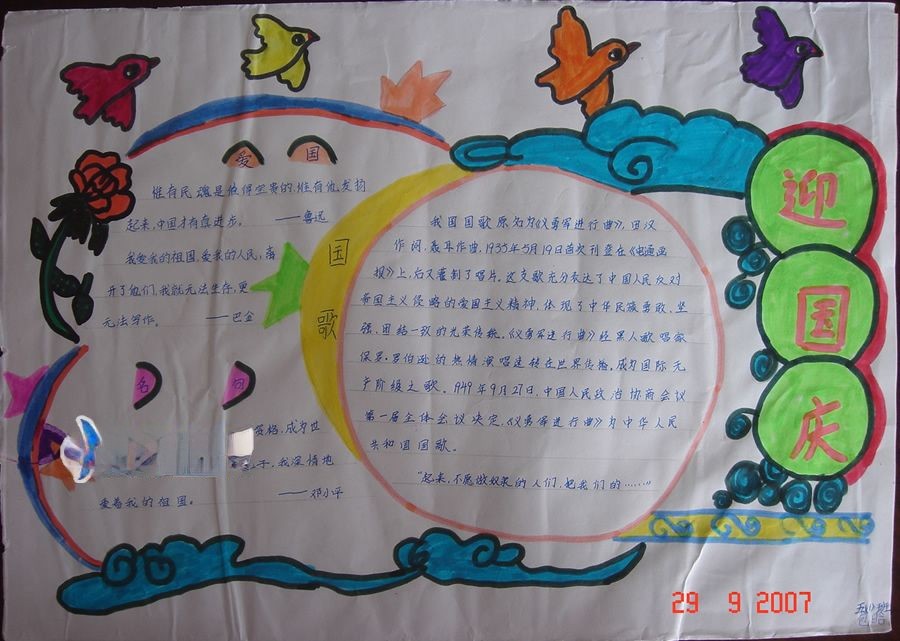 爱国
惟有民魂是值得宝贵的,惟有他发扬
起来,中国才有真进步。 ——鲁迅
我爱我的祖国,爱我的人民,离
开了他们,我就无法生存,更
无法写作。 ——巴金
名句
资格,成为世
子,我深情地
爱着我的祖国。 ——邓小平
国歌
我国国歌原名为《义勇军进行曲》,田汉
作词,聂耳作曲,1935年5月19日首次刊登在《电通画
报》上,后又灌制了唱片。这支歌充分表达了中国人民反对
帝国主义侵略的爱国主义精神,体现了中华民族勇敢、坚
强、团结一致的光荣传统。《义勇军进行曲》经黑人歌唱家
保罗·罗伯逊的热情演唱迅转在世界传播。成为国际无
产阶级之歌。1949年9月27日,中国人民政治协商会议
第一届全体会议决定,《义勇军进行曲》为中华人民
共和国国歌。
“起来,不愿做奴隶的人们,把我们的……”
迎国庆
29 9 2007
五(1)班